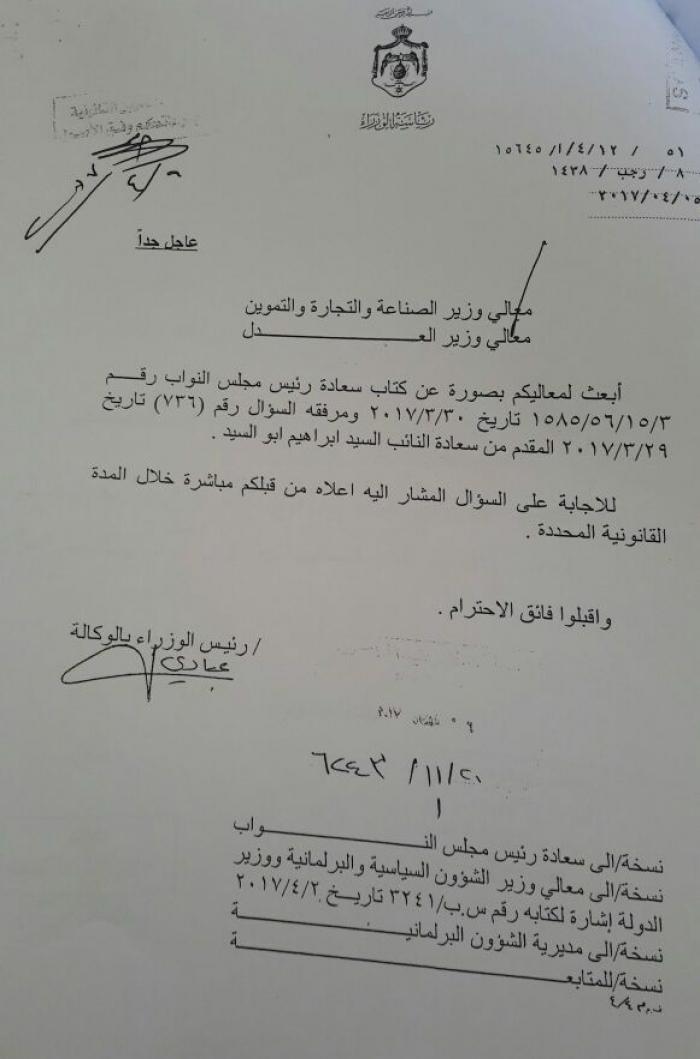 رئاسة الوزراء
٥١ / ١٢/ ٤/ ١/ ١٥٦٤٥
٨ / رجب / ١٤٣٨
٢٠١٧/٠٤/٠٥
عاجل جداً
معالي وزير الصناعة والتجارة والتموين
معالي وزير العــــــــــــــدل
أبعث لمعاليكم بصورة عن كتاب سعادة رئيس مجلس النواب رقـــم
١٥٨٥/٥٦/١٥/٣ تاريخ ٢٠١٧/٣/٣٠ ومرفقه السؤال رقم (٧٣٦) تاريخ
٢٠١٧/٣/٢٩ المقدم من سعادة النائب السيد ابراهيم ابو السيد .
للاجابة على السؤال المشار اليه اعلاه من قبلكم مباشرة خلال المدة
القانونية المحددة .
واقبلوا فائق الاحترام .
/ رئيس الوزراء بالوكالة
عبادي
٢٠١٧
٦٢٤٣ /١١/٢٠
١
نسخة/الى سعادة رئيس مجلس النــــــــــــــــواب
نسخة/الى معالي وزير الشؤون السياسية والبرلمانية ووزير
الدولة إشارة لكتابه رقم س.ب/٣٢٤١ تاريـخ ٢٠١٧/٤/٢
نسخة/الى مديرية الشؤون البرلمانيــــــــــــــــة
نسخة/للمتابعــــــــــــــــــــــــــة
٤/٤